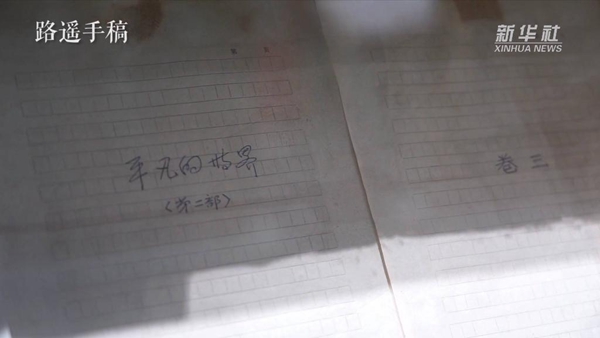 路遥手稿
新华社
XINHUA NEWS
平凡的世界
(第二部)
卷三